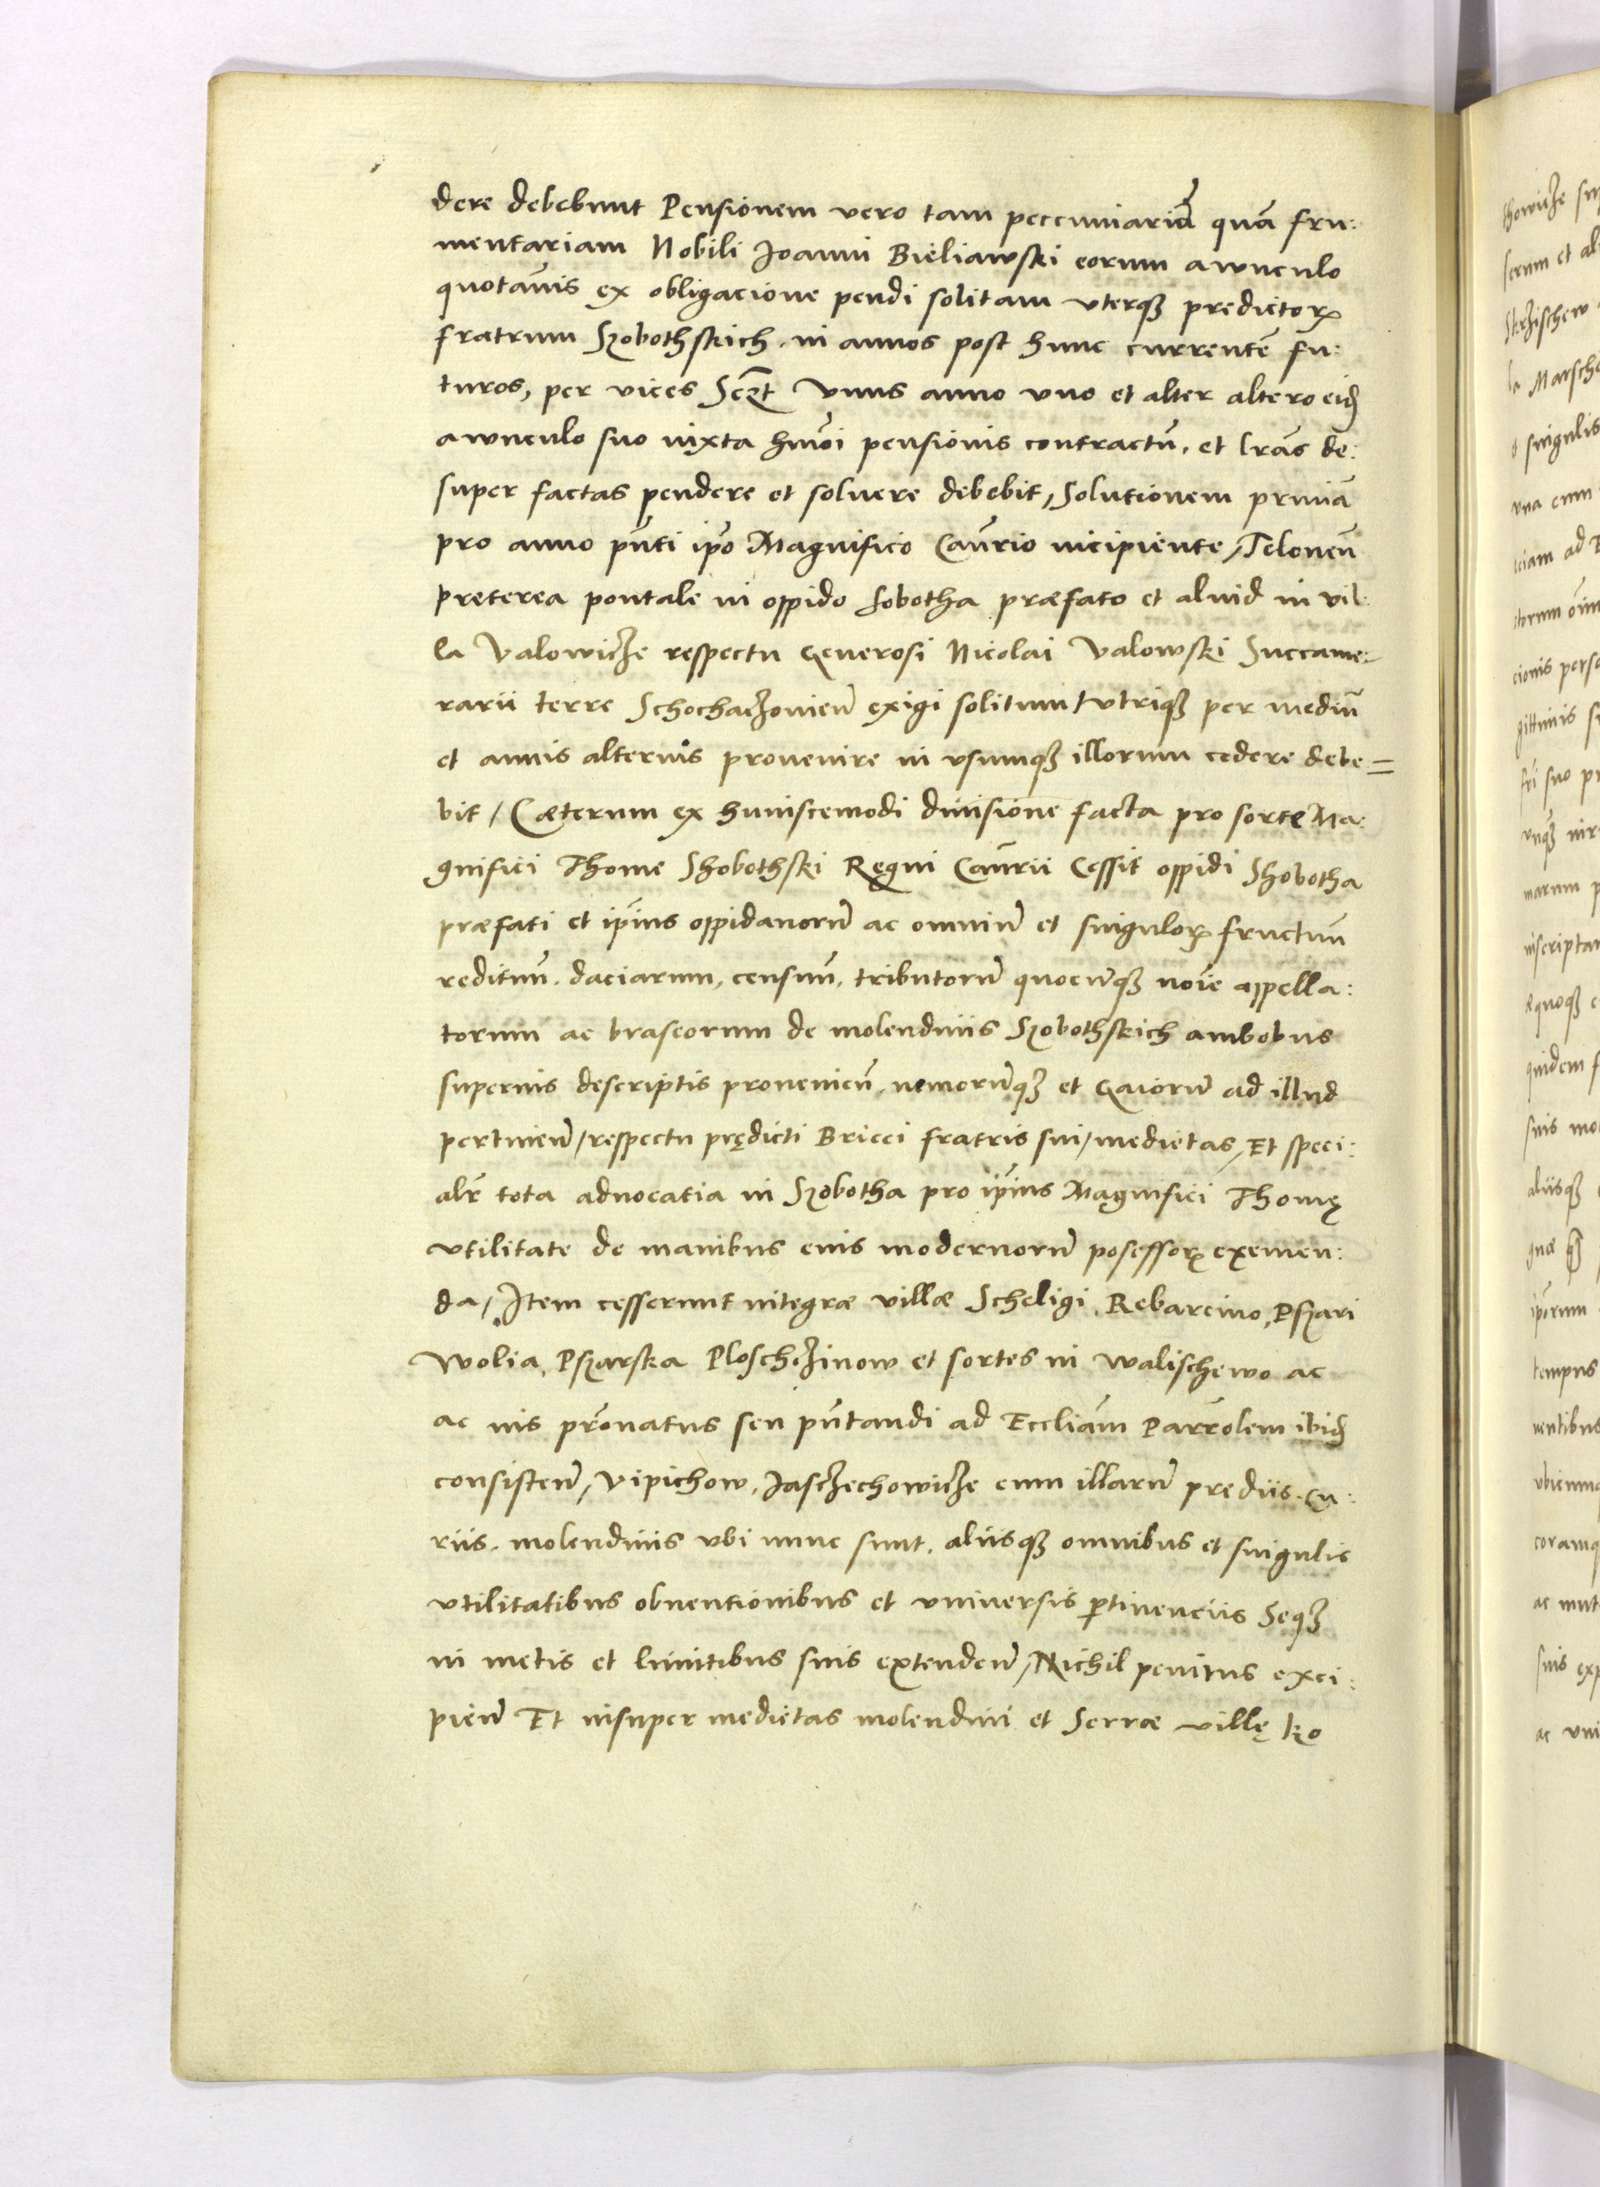 dere debebunt Pensionem vero tam peccuniariā quā fru:
mentariam Nobili Joanni Bieliawski eorum awnculo
quotānis ex obligacione pendi solitam vterqꝫ predictoꝝ
fratrum Szobothskich. in annos post hunc currentē fu:
turos, per vices Scꝫt Vnus anno vno et alter altero eidꝫ
awnculo suo iuxta hmōi pensionis contractū. et lrās de:
super factas pendere et soluere debebit, Solutionem primā
pro anno pn̄ti ip̄o Magnifico Can̄rio incipiente, Teloneū
preterea pontale in oppido Sobotha præfato et aliud in vil:
la Valowicze respectu Generosi Nicolai Valowski Succame=
rarii terre Schochaczouien̄ exigi solitum vtriqꝫ per mediū
et annis alternis prouenire in vsumqꝫ illorum cedere debe=
bit, Cæterum ex huiuscemodi diuisione facta pro sorte Ma:
gnifici Thome Shobothski Regni Can̄rii Cessit oppidi Shobotha
præfati et ip̄ius oppidanorū ac omniū et singuloꝝ fructuū
redituū. daciarum, censuū, tributorū quocūqꝫ noīe appella:
torum ac braseorum de molendinis Szobothskich ambobus
supernis descriptis prouenien̄. nemorūqꝫ et Gaiorū ad illud
pertinen̄, respectu prędicti Bricci fratris sui, medietas, Et speci:
alr̄ tota aduocatia in Szobotha pro ip̄ius Magnifici Thomę
vtilitate de manibus eius modernorū posessoꝝ exemen:
da, Item cesserunt integræ villæ Scheligi, Rebarcino, Pszari
Wolia, Pszarska Ploschczinow et sortes in Walischewo ac
ac ius pr̄onatus seu pn̄tandi ad Eccliām Parrōlem ibidꝫ
consisten̄, Vipichow, Jasczechowicze cum illarū prediis. cu:
riis. molendinis vbi nunc sunt. aliisqꝫ omnibus et singulis
vtilitatibus obuentionibus et vniuersis ꝑtinenciis Seqꝫ
in metis et limitibus suis extenden̄, Nichil penitus exci:
pien̄ Et insuper medietas molendini et Serræ villę ko